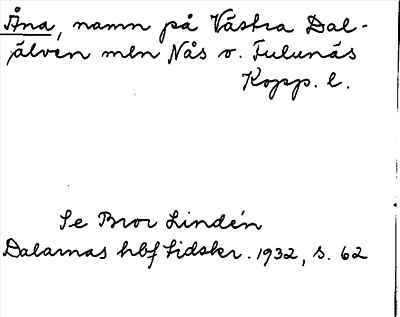 Åna, namn på Västra Dal-
älven mln Nås o. Fulunäs
Kopp. l.
Se Bror Lindén
Dalarnas hbf tidskr. 1932, s. 62